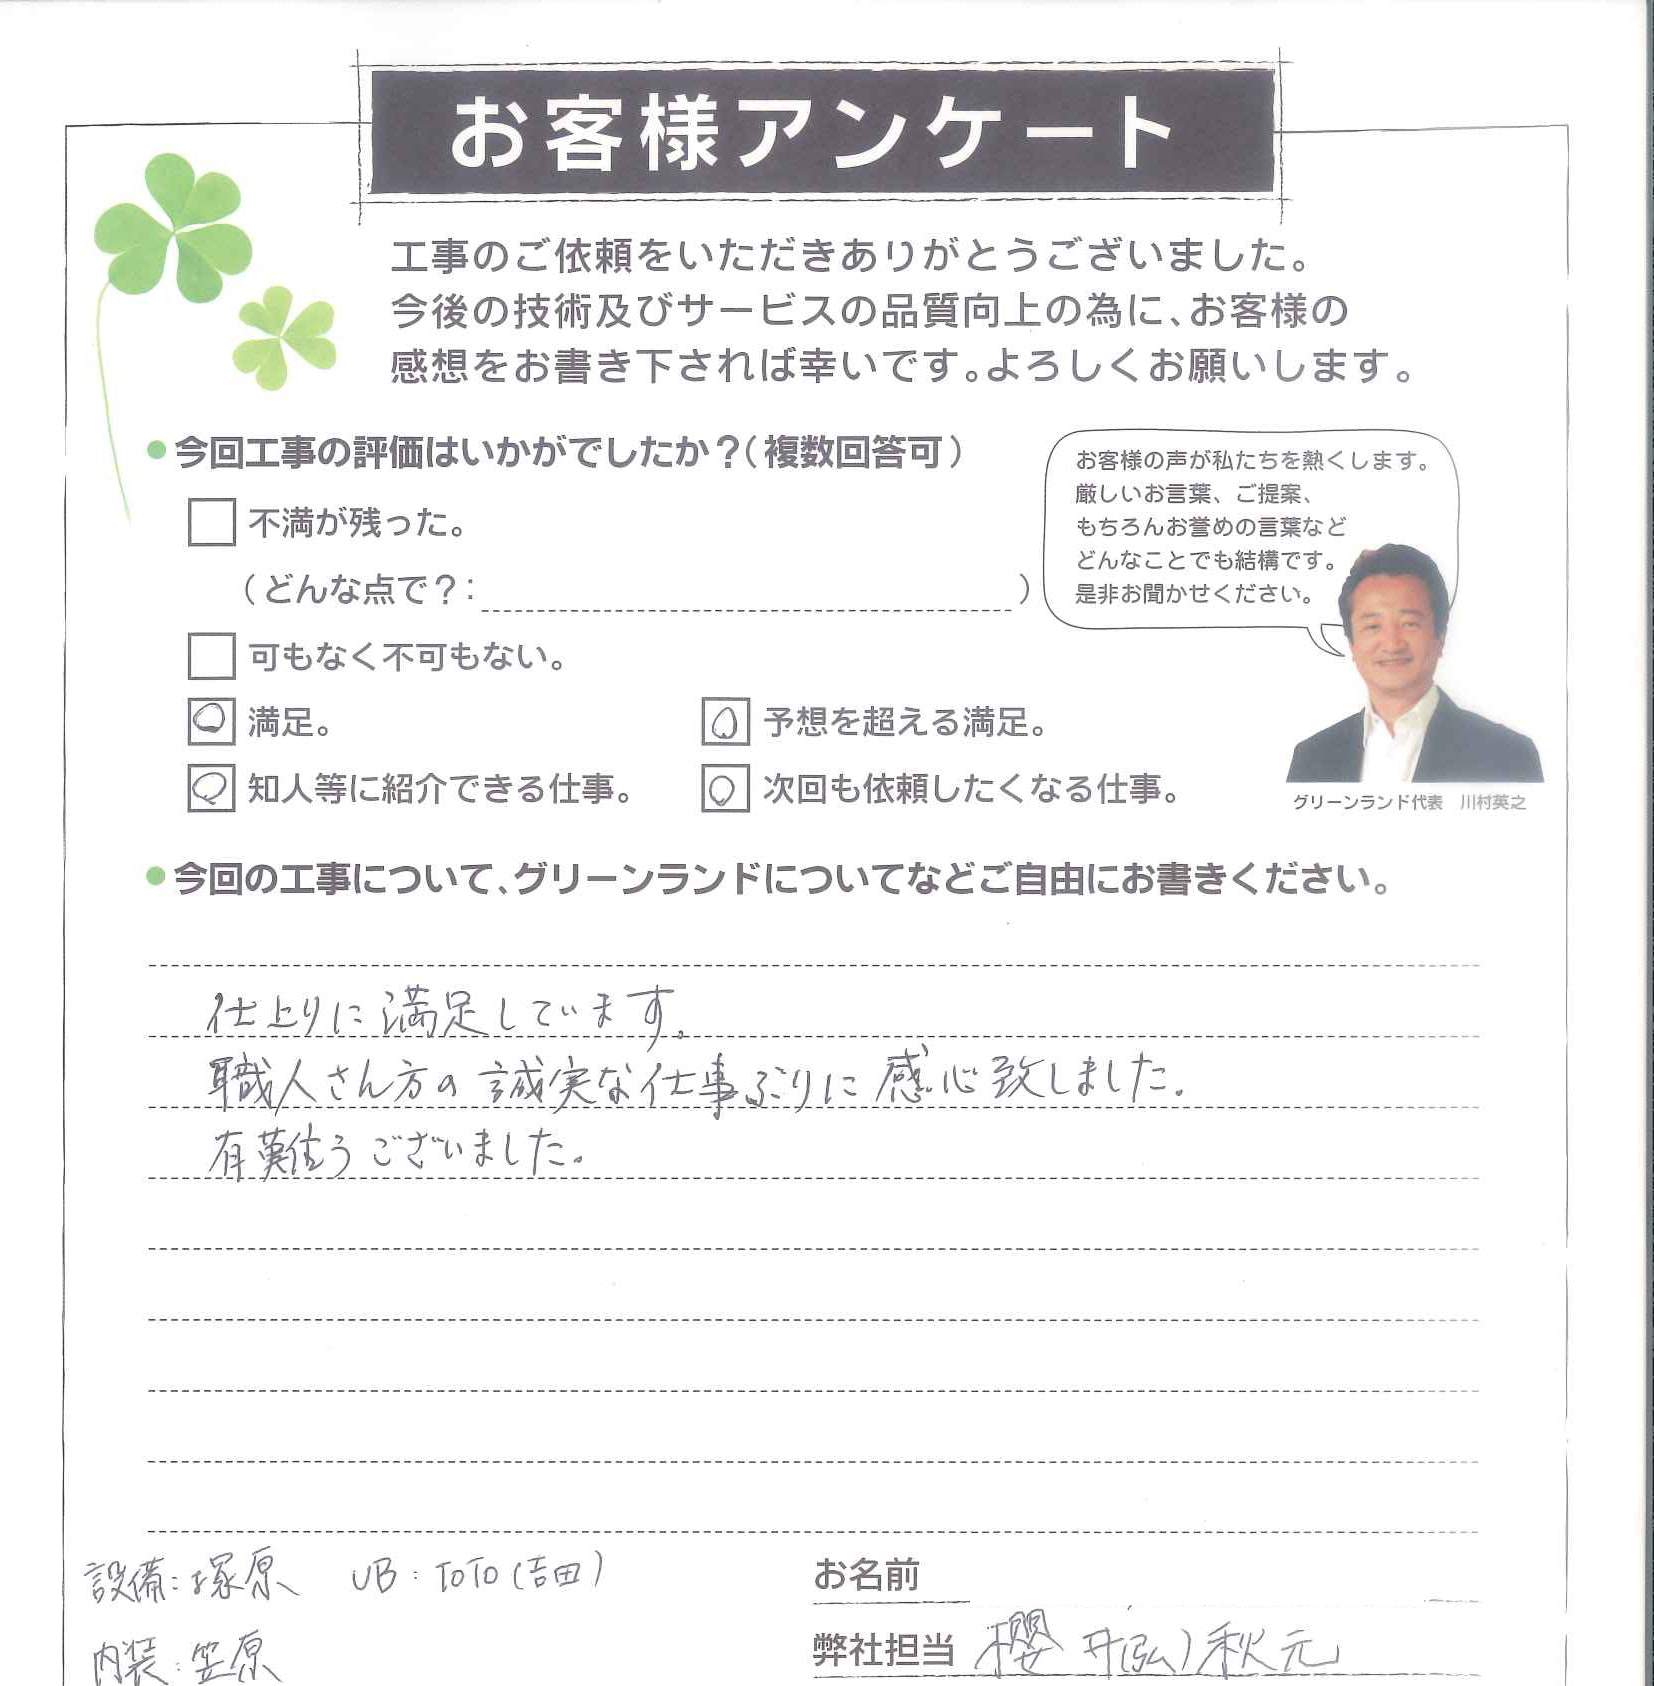 お客様アンケート
工事のご依頼をいただきありがとうございました。
今後の技術及びサービスの品質向上の為に、お客様の
感想をお書き下されば幸いです。よろしくお願いします。
●今回工事の評価はいかがでしたか？(複数回答可)
不満が残った。
(どんな点で？: )
可もなく不可もない。
満足。
予想を超える満足。
知人等に紹介できる仕事。
次回も依頼したくなる仕事。
お客様の声が私たちを熱くします。
厳しいお言葉、ご提案、
もちろんお誉めの言葉など
どんなことでも結構です。
是非お聞かせください。
グリーンランド代表 川村英之
●今回の工事について、グリーンランドについてなどご自由にお書きください。
仕上りに満足しています。
職人さん方の誠実な仕事ぶりに感心致しました。
有難うございました。
設備:塚原 UB:TOTO(吉田)
内装:笠原
お名前
弊社担当 櫻井(弘)秋元